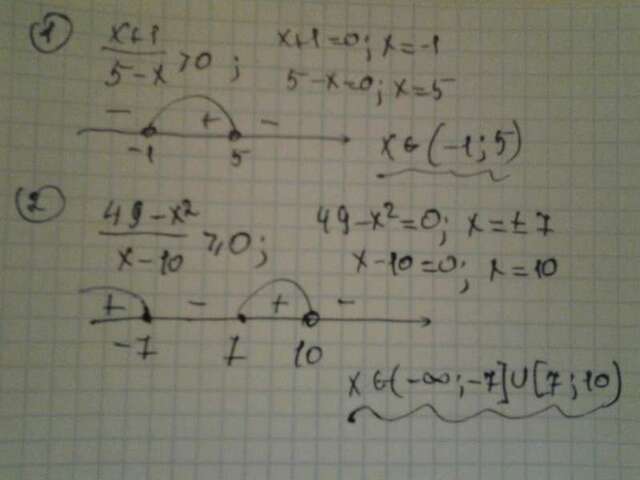 ① x+1 / 5-x >0; x+1=0; x=-1
5-x=0; x=5
- + -
-1 5 x∈(-1;5)
② 49-x² / x-10 ≥0; 49-x²=0; x=±7
x-10=0; x=10
+ - + -
-7 7 10
x∈(-∞;-7]∪[7;10)